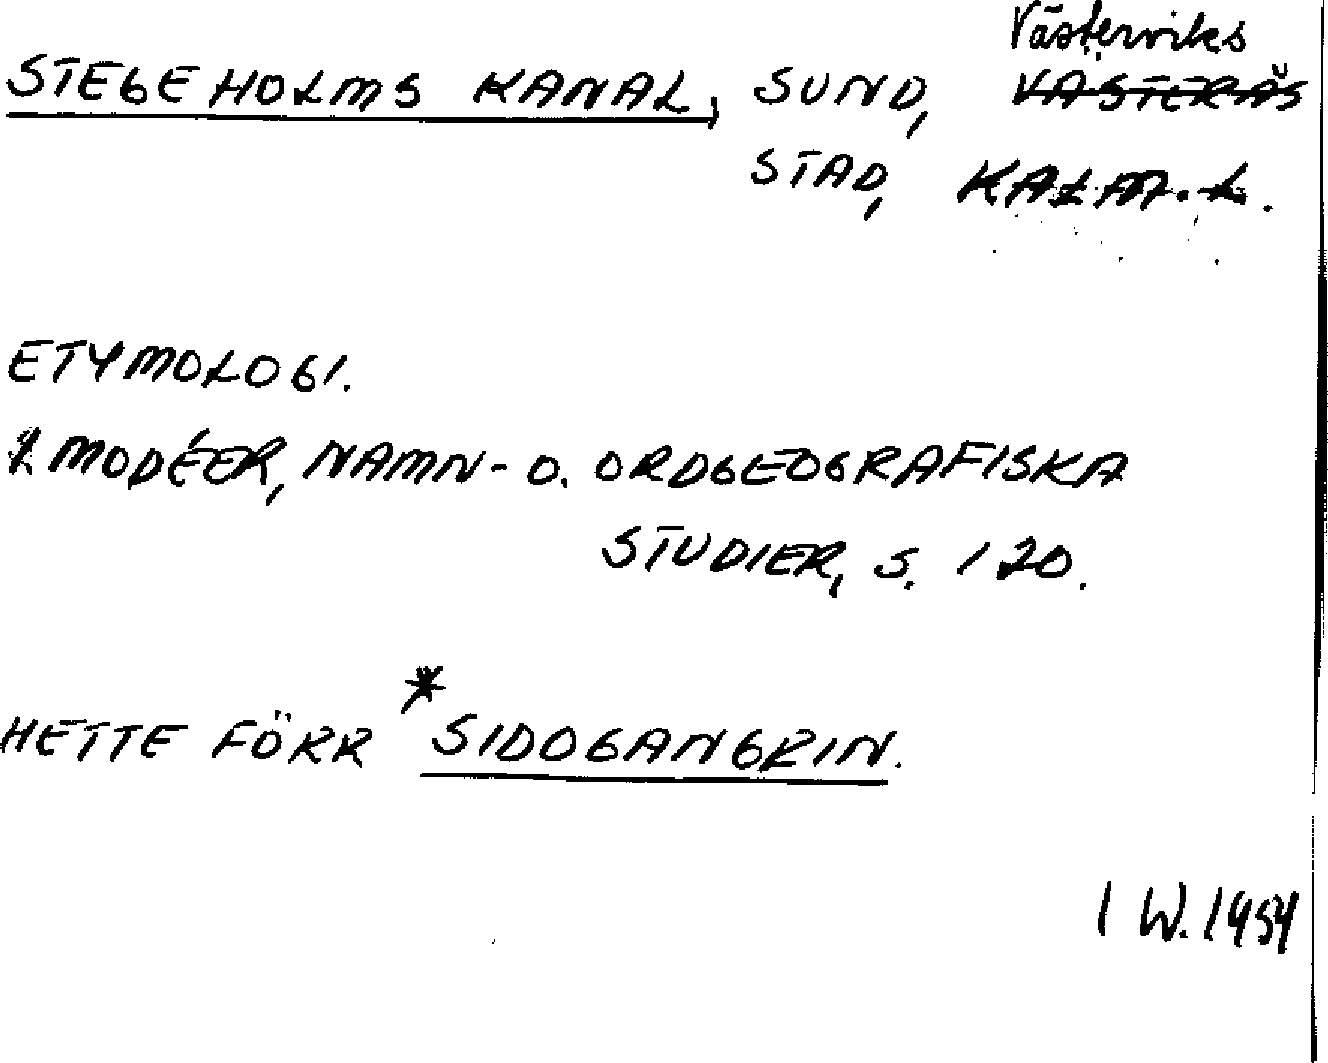 Västerviks
STEGEHOLMS KANAL, SUND, VÄSTERÅS
STAD, KALM. L.
ETYMOLOGI.
I. MODÉER, NAMN- O. ORDGEOGRAFISKA
STUDIER, S. 120.
HETTE FÖRR *SIDOGANGRIN.
I W. 1954